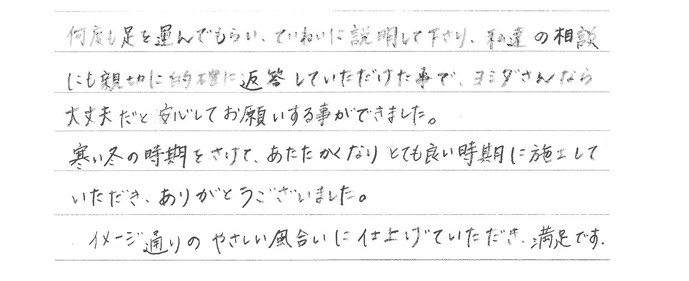 何度も足を運んでもらい、ていねいに説明して下さり、私達の相談
にも親切に的確に返答していただけた事で、ヨシダさんなら
大丈夫だと安心してお願いする事ができました。
寒い冬の時期をさけて、あたたかくなりとても良い時期に施工して
いただき、ありがとうございました。
イメージ通りのやさしい風合いに仕上げていただき、満足です。